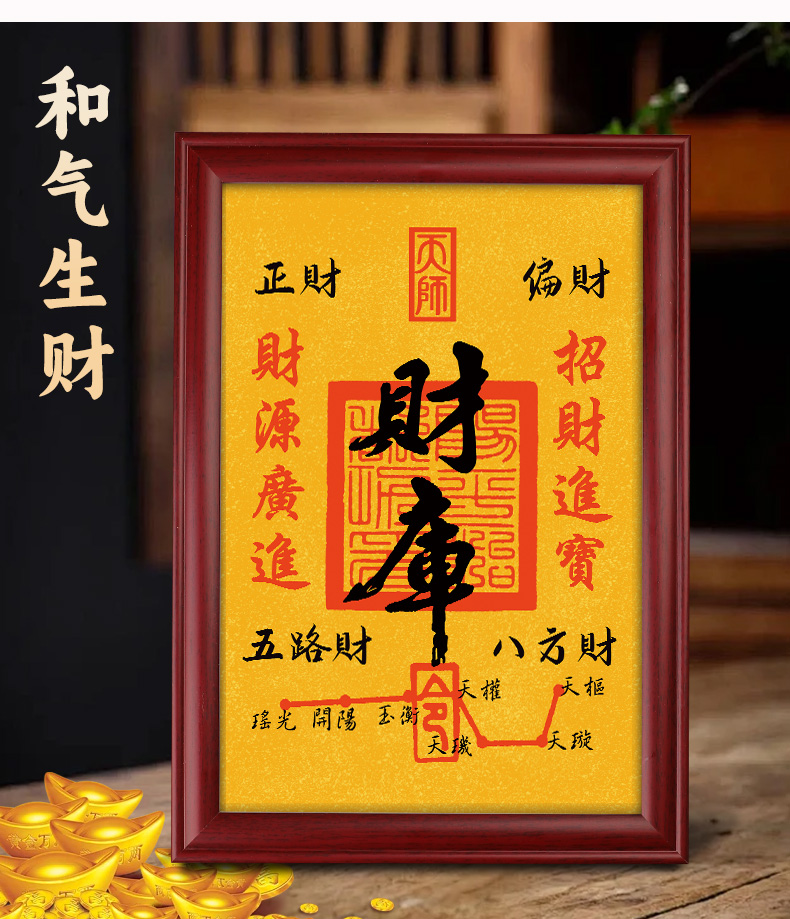 和气生财
天師
正財
偏財
財源廣進
招財進寶
財庫
五路財
八方財
令
瑤光
開陽
玉衡
天權
天樞
天璣
天璇